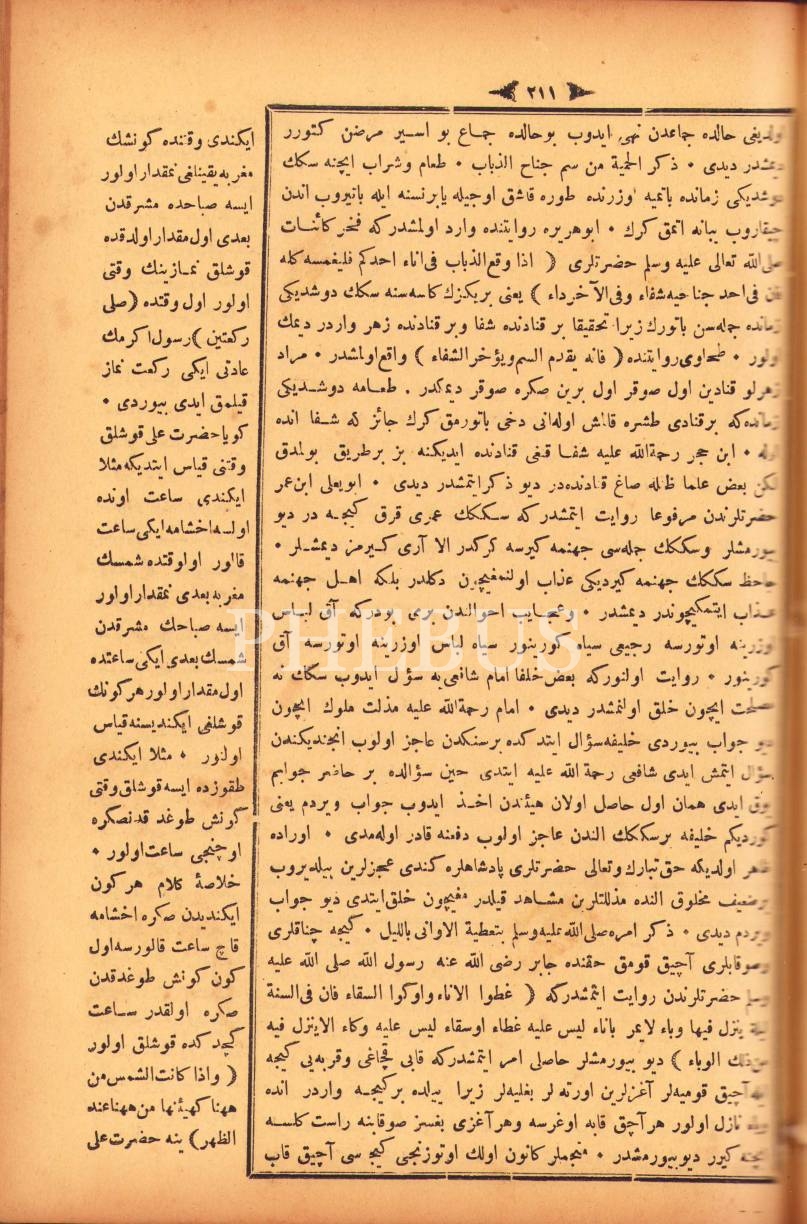 ٢١١
اولديغى حالده جماعدن نهى ايدوب بوحالده جماع بو اسير مرضن كتورر
ديمشدر ديدى ٠ ذكر الحمية من سم جناح الذباب ٠ طعام وشراب ايچنه سكك
دوشديكى زمانده باتميه اوزرنده طوره قاشق اوجيله يا برنسنه ايله باتيروب اندن
چيقاروب يبانه اتمق كرك ٠ ابوهريره روايتنده وارد اولمشدركه فخر كائنات
صلى الله تعالى عليه وسلم حضرتلرى ( اذا وقع الذباب فى اناء احدكم فليغمسه كله
فان فى احد جناحيه شفاء وفى الآخر داء ) يعنى بريكزك كاسه سنه سكك دوشديكى
زمانده جمله سن باتورك زيرا تحقيقا بر قنادنده شفا وبر قنادنده زهر واردر ديمك
اولور ٠ طحاوى روايتنده ( فانه يقدم السم ويؤخر الشفاء ) واقع اولمشدر ٠ مراد
زهرلو قنادين اول صوقر اول برين صكره صوقر ديمكدر . طعامه دوشديكى
زمانده كه برقنادى طشره قالمش اوله انى دخى باتورمق كرك جائز كه شفا انده
اوله ٠ ابن حجر رحمة الله عليه شفا قنغى قنادنده ايديكنه بز برطريق بولمدق
لكن بعض علما صاغ قنادنده در ديو ذكر ايتمشدر ديدى ٠ ابويعلى ابن عمر
حضرتلرندن مرفوعا روايت ايتمشدركه سككك عمرى قرق كيجه در ديو
بيورمشلر وسككك جمله سى جهنمه كيرسه كركدر الا آرى كيرمز ديمشلر ٠
جاحظ سككك جهنمه كيرديكى عذاب اولنمغيچون دكلدر بلكه اهل جهنمه
عذاب ايتمكيچوندر ديمشدر ٠ وعجايب احوالندن برى بودركه آق لباس
اوزرينه اوتورسه رجيعى سياه كورينور سياه لباس اوزرينه اوتورسه آق
كورينور ٠ روايت اولنوركه بعض خلفا امام شافعى يه سؤال ايدوب سكك نه
مصلحت ايچون خلق اولنمشدر ديدى ٠ امام رحمة الله عليه مذلت ملوك ايچون
ديو جواب بيوردى خليفه سؤال ايتدكده برسنكدن عاجز اولوب انجنديكندن
سؤال ايتمش ايدى شافعى رحمة الله عليه ايتدى حين سؤالده بر حاضر جوابم
يوق ايدى همان اول حاصل اولان هيئدن اخذ ايدوب جواب ويردم يعنى
كورديكم خليفه برسككك الندن عاجز اولوب دفعنه قادر اوله مدى ٠ اوراده
ظاهر اولديكه حق تبارك وتعالى حضرتلرى پادشاهلره كندى عجزلرين بيلديروب
برضعيف مخلوق النده مذلتلرين مشاهد قيلدر مغيچون خلق ايتدى ديو جواب
ويردم ديدى ٠ ذكر امره صلى الله عليه وسلم بتغطية الاوانى بالليل ٠ كيجه چناقلرى
وصو قابلرى آچيق قومق حقنده جابر رضى الله عنه رسول الله صلى الله عليه
وسلم حضرتلرندن روايت ايتمشدركه ( غطوا الاناء واوكوا السقاء فان فى السنة
ليلة ينزل فيها وباء لايمر باناء ليس عليه غطاء اوسقاء ليس عليه وكاء الا ينزل فيه
من ذلك الوباء ) ديو بيورمشلر حاصلى امر ايتمشدركه قابى قچاغى وقربه يى كيجه
ايله آچيق قوميه لر آغزلرين اورته لر بغليه لر زيرا ييلده بركيجه واردر انده
وبا نازل اولور هر آچق قابه اوغرسه وهر آغزى بغسز صوقابنه راست كلسه
ايچنه كيرر ديو بيورمشدر ٠ منجملر كانون اولك اوتوزنجى كيجه سى آچيق قاب
ايكندى وقتنده كونشك
مغربه يقينلغى نمقدار اولور
ايسه صباحده مشرقدن
بعدى اول مقدار اولدقده
قوشلق نمازينك وقتى
اولور اول وقتده (صلى
ركعتين) رسول اكرمك
عادتى ايكى ركعت نماز
قيلمق ايدى بيوردى ٠
كويا حضرت على قوشلق
وقتنى قياس ايتديكه مثلا
ايكندى ساعت اونده
اولسه اخشامه ايكى ساعت
قالور اول وقتده شمسك
مغربه بعدى نمقدار اولور
ايسه صباحك مشرقدن
شمسك بعدى ايكى ساعتده
اول مقدار اولور هر كونك
قوشلغى ايكنديسنه قياس
اولنور ٠ مثلا ايكندى
طقوزده ايسه قوشلق وقتى
كونش طوغدقدنصكره
اوچنجى ساعت اولور ٠
خلاصۀ كلام هر كون
ايكنديدن صكره اخشامه
قاچ ساعت قالورسه اول
كون كونش طوغدقدن
صكره اولقدر ساعت
كچدكده قوشلق اولور
( واذا كانت الشمس من
ههنا كهيئتها من ههنا عند
الظهر) ينه حضرت على
PHEBUS